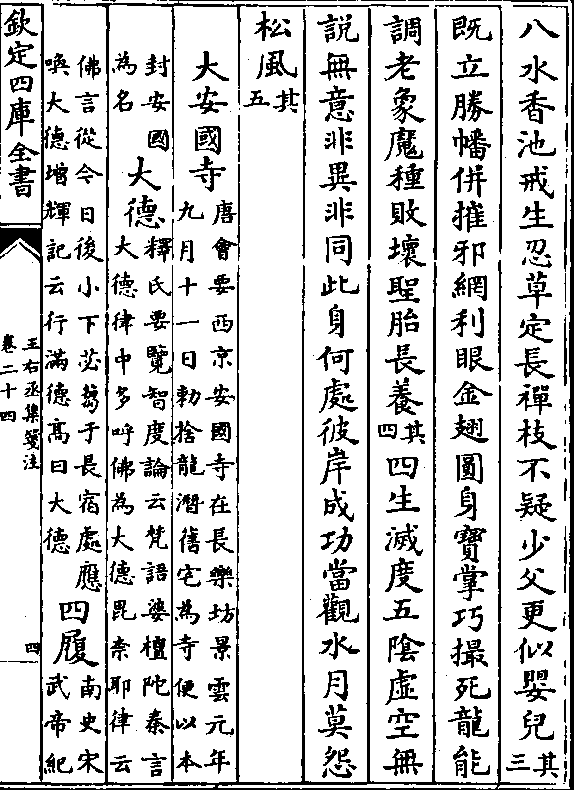 八水香池戒生忍草定長禪枝不疑少父更似嬰兒其三
既立勝幡併摧邪網利眼金翅圓身寶掌巧撮死龍能
調老象魔種敗壞聖胎長養其四四生滅度五陰虛空無
說無意非異非同此身何處彼岸成功當觀水月莫怨
松風其五
大安國寺唐會要西京安國寺在長樂坊景雲元年
九月十一日勅捨龍潛舊宅為寺便以本
封安國
為名
大德釋氏要覽智度論云梵語婆檀陀秦言
大德律中多呼佛為大德毘奈耶律云
佛言從今日後小下苾蒭于長宿處應
喚大德增輝記云行滿德髙曰大德
四履南史宋
武帝紀
欽定四庫全書
王右丞集箋注
卷二十四
四